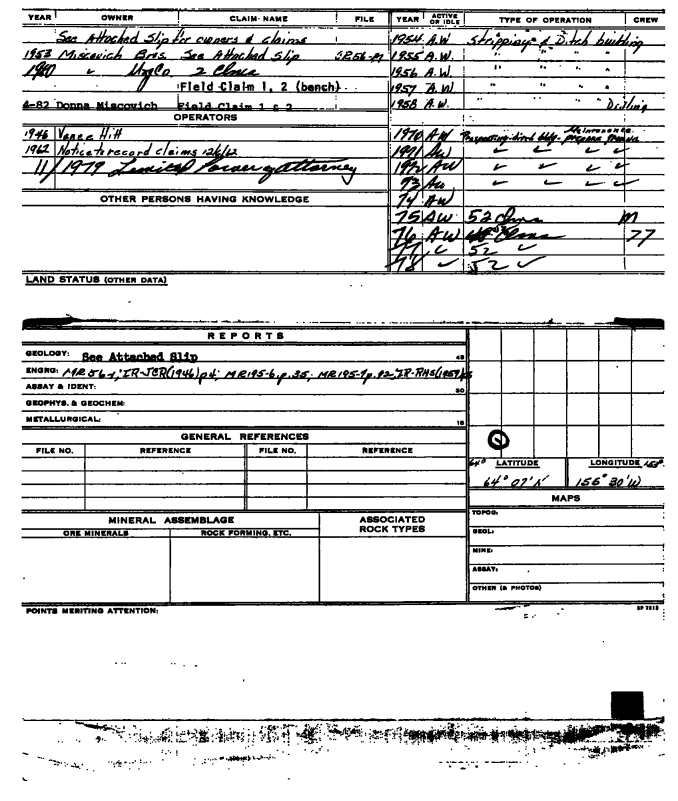 YEAR OWNER CLAIM NAME FILE YEAR ACTIVE OR IDLE TYPE OF OPERATION CREW
See Attached Slip for owners & claims 1954 A.W. Stripping & Ditch building
1953 Miscovich Bros. See Attached Slip 1955 A.W. " " " "
2 Clms 1956 A.W. " " " "
Field Claim 1, 2 (bench) 1957 A.W. " " " "
4-82 Donna Miscovich Field Claim 1 & 2 1958 A.W. " " " Drilling
OPERATORS
1946 Vance Hitt 1970 AW Maintenance
1962 Notice to record claims 12/6/62 1971 AW
11/1979 Limited Power of Attorney 1972 AW
73 AW
OTHER PERSONS HAVING KNOWLEDGE 74 AW
75 AW 52 Clms M
76 AW Clms 77
77 52
78 52
LAND STATUS (OTHER DATA)
REPORTS
GEOLOGY: See Attached Slip 45
ENGRG: IR-JCR(1946)p4; MR195-6, p.35; MR195-7 p.92; IR-RHS(1957)
ASSAY & IDENT: 20
GEOPHYS. & GEOCHEM:
METALLURGICAL: 15
GENERAL REFERENCES
FILE NO. REFERENCE FILE NO. REFERENCE
64° LATITUDE LONGITUDE
64° 07' N 156° 30' W
MAPS
MINERAL ASSEMBLAGE ASSOCIATED ROCK TYPES
ORE MINERALS ROCK FORMING, ETC.
TOPOG:
GEOL:
MINE:
ASSAY:
OTHER (& PHOTOS)
POINTS MERITING ATTENTION: